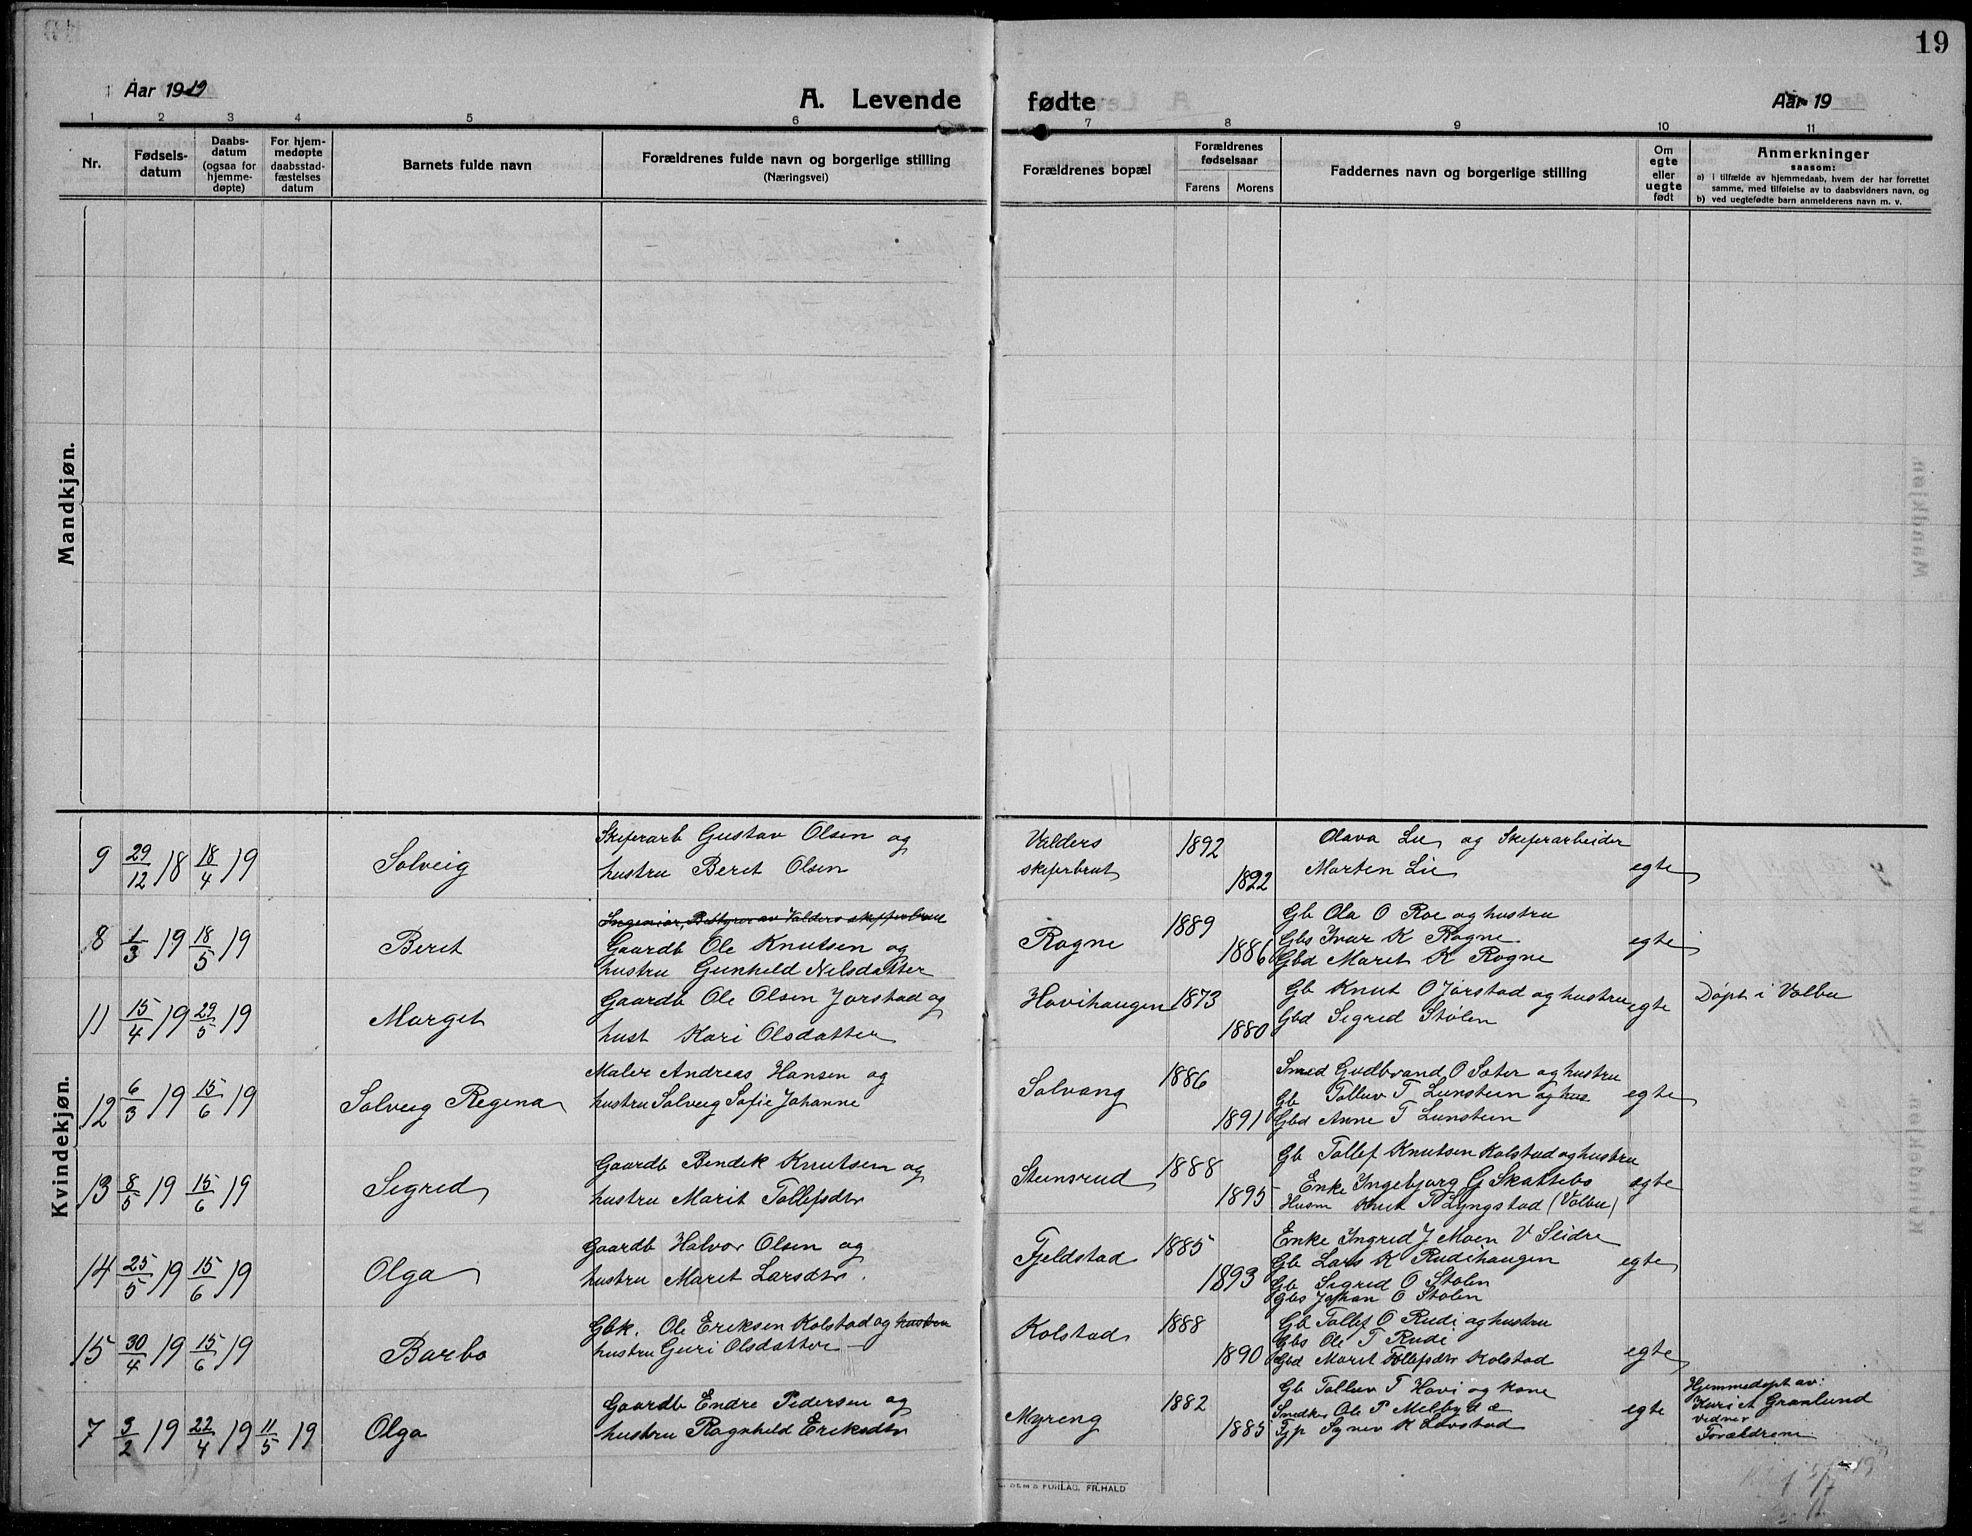 19
Aar 1919
A. Levende fødte
Aar 19
1 2 3 4 5 6 7 8 9 10 11
Nr.
Fødsels-
datum
Daabs-
datum
(ogsaa for
hjemme-
døpte)
For hjem-
medøpte
daabsstad-
fæstelses
datum
Barnets fulde navn
Forældrenes fulde navn og borgerlige stilling
(Næringsvei)
Forældrenes bopæl
Forældrenes
fødselsaar
Farens Morens
Faddernes navn og borgerlige stilling
Om
egte
eller
uegte
født
Anmerkninger
saasom:
a) i tilfælde av hjemmedaab, hvem der har forrettet
samme, med tilføielse av to daabsvidners navn, og
b) ved uegtefødte barn anmelderens navn m. v.
Mandkjøn.
Kvindekjøn.
9 29/12 18 18/4 19 Solveig
Skiferarb Gustav Olsen og
hustru Beret Olsen
Valders
skiferbrut
1892
1892
Olava Lie og Skiferarbeider
Morten Lie
egte
8 1/3 19 18/5 19 Berit
Ingeniør, Bestyrer av Valders skiferbrud
Gaardb Ole Knutsen og
hustru Gunhild Nilsdatter
Rogne
1889
1886
Gb Ola O Roe og hustru
Gbs Ivar K Rogne
Gbd Marit K Rogne
egte
11 15/4 19 29/5 19 Margit
Gaardb Ole Olsen Jorstad og
hust Kari Olsdatter
Hovihaugen
1873
1880
Gb Knut O Jorstad og hustru
Gbd Sigrid Stolen
egte
Døpt i Volbu
12 6/3 19 15/6 19 Solveig Regina
Maler Andreas Hansen og
hustru Solveig Sofie Johanne
Solvang
1886
1891
Smed Gudbrand O Sæter og hustru
Gb Tollev T Lunstein og hus
Gbd Anne T Lunstein
egte
13 8/5 19 15/6 19 Sigrid
Gaardb Bendik Knutsen og
hustru Marit Tollefsdtr
Steinsrud
1888
1895
Gb Tollef Knutsen Kolstad og hustru
Enke Ingebjørg G Skattebo
Husm Knut T Lyngstad (Volbu)
egte
14 25/5 19 15/6 19 Olga
Gaardb Halvor Olsen og
hustru Marit Larsdtr.
Fjeldstad
1885
1893
Enke Ingrid J Moen V Slidre
Gb Lars K Rudihaugen
Gb Sigrid O Stolen
Gbs Johan O Stolen
egte
15 30/4 19 15/6 19 Barbo
Gbk. Ole Eriksen Kolstad og hustru
hustru Guri Olsdatter
Kolstad
1888
1890
Gb Tollef O Rudi og hustru
Gbs Ole T Rudi
Gbd Marit Tollefsdtr Kolstad
egte
7 3/2 19 22/4 19 11/5 19 Olga
Gaardb Endre Pedersen og
hustru Ragnhild Eriksdtr
Myreng
1882
1885
Gb Tollev T Hovi og kone
Snedker Ole P Melby
Pige K Lovstad
egte
Hjemmedøpt av:
Kari A Granlund
vidner
Forældrene
FORLAG, FR.HALD